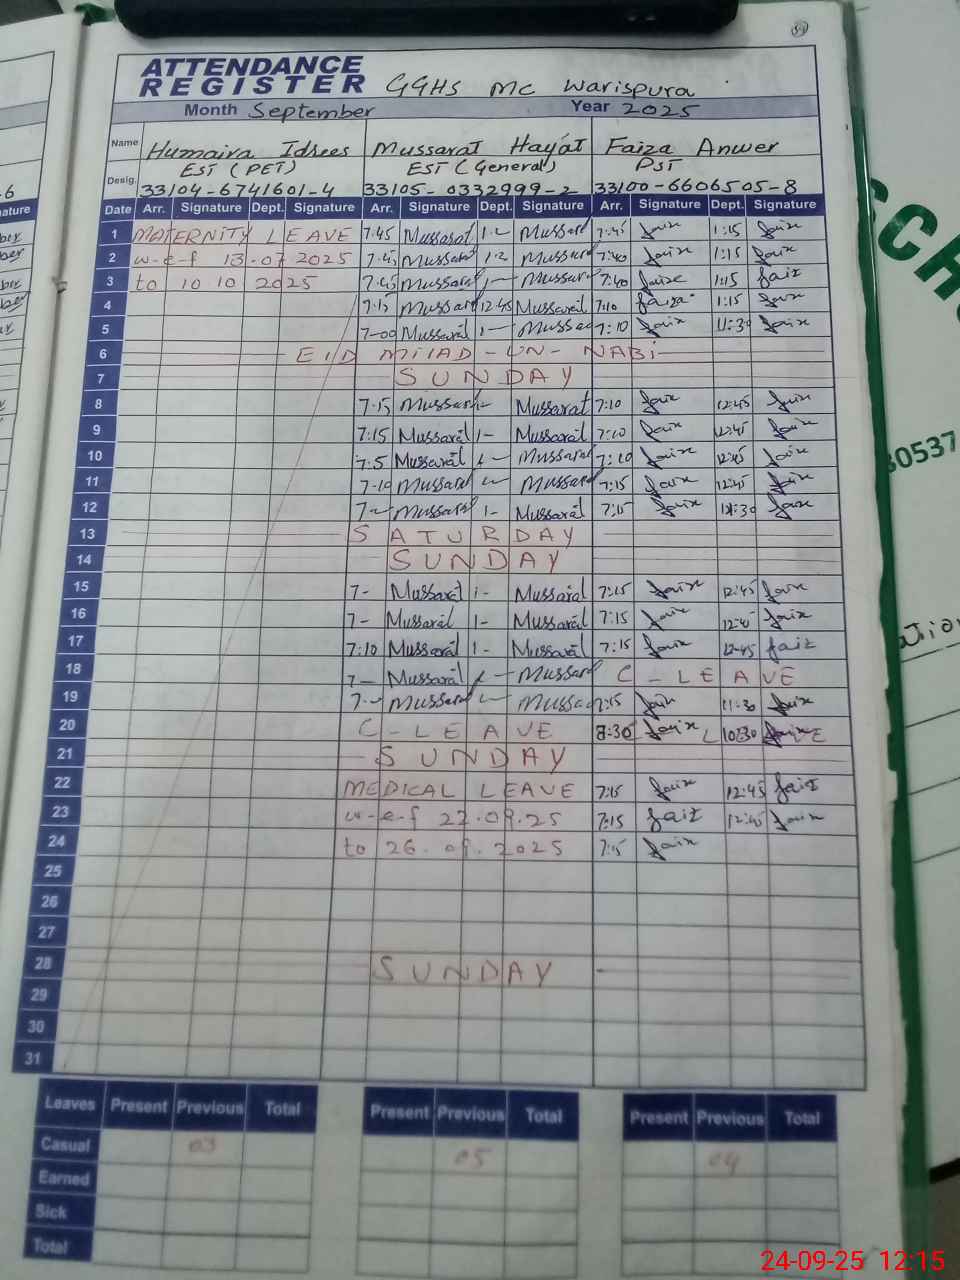 ATTENDANCE
REGISTER GGHS MC Warispura
Month September Year 2025
Name Humaira Idrees Mussarat Hayat Faiza Anwer
Desig. EST (PET) EST (General) PST
33104-6741601-4 33105-0332999-2 33100-6606505-8
Date Arr. Signature Dept. Signature Arr. Signature Dept. Signature Arr. Signature Dept. Signature
1 MATERNITY LEAVE 7.45 Mussarat Mussarat 7:45 faix 1:15 faix
2 w-e-f 13.07 2025 7.45 Mussarat Mussarat 7:40 faix 1:15 faix
3 to 10 10 2025 7.45 Mussarat Mussarat 7:40 faix 1:15 faiz
4 7.15 Mussarat 12.45 Mussarat 7:10 faiza 1:15 faix
5 7-00 Mussarat 1- Mussarat 7:10 faix 11:30 faix
6 EID MILAD-UN-NABI
7 SUNDAY
8 7.15 Mussarat 1- Mussarat 7:10 faix 12:45 faix
9 7:15 Mussarat 1- Mussarat 7:10 faix 12:45 faix
10 Mussarat Mussarat 7:10 faix 12:45 faix
11 7-10 Mussarat Mussarat 7:15 faix 12:45 faix
12 7- Mussarat 1- Mussarat 7:15 faix faix
13 SATURDAY
14 SUNDAY
15 7- Mussarat 1- Mussarat 7:15 faix 12:45 faix
16 7- Mussarat 1- Mussarat 7:15 faix 12:45 faix
17 7:10 Mussarat 1- Mussarat 7:15 faix 12:45 faiz
18 7- Mussarat Mussarat C-LEAVE
19 7- Mussarat Mussarat 7:15 faix 11:30 faix
20 C-LEAVE 8:30 faix 10:30 faix
21 SUNDAY
22 MEDICAL LEAVE 7:15 faix 12:45 faiz
23 w-e-f 22.09.25 7:15 faiz 12:45 faix
24 to 26.09.2025 7:15 faix
25
26
27
28 SUNDAY
29
30
31
Leaves Present Previous Total Present Previous Total Present Previous Total
Casual 03 05 04
Earned
Sick
Total
24-09-25 12:15